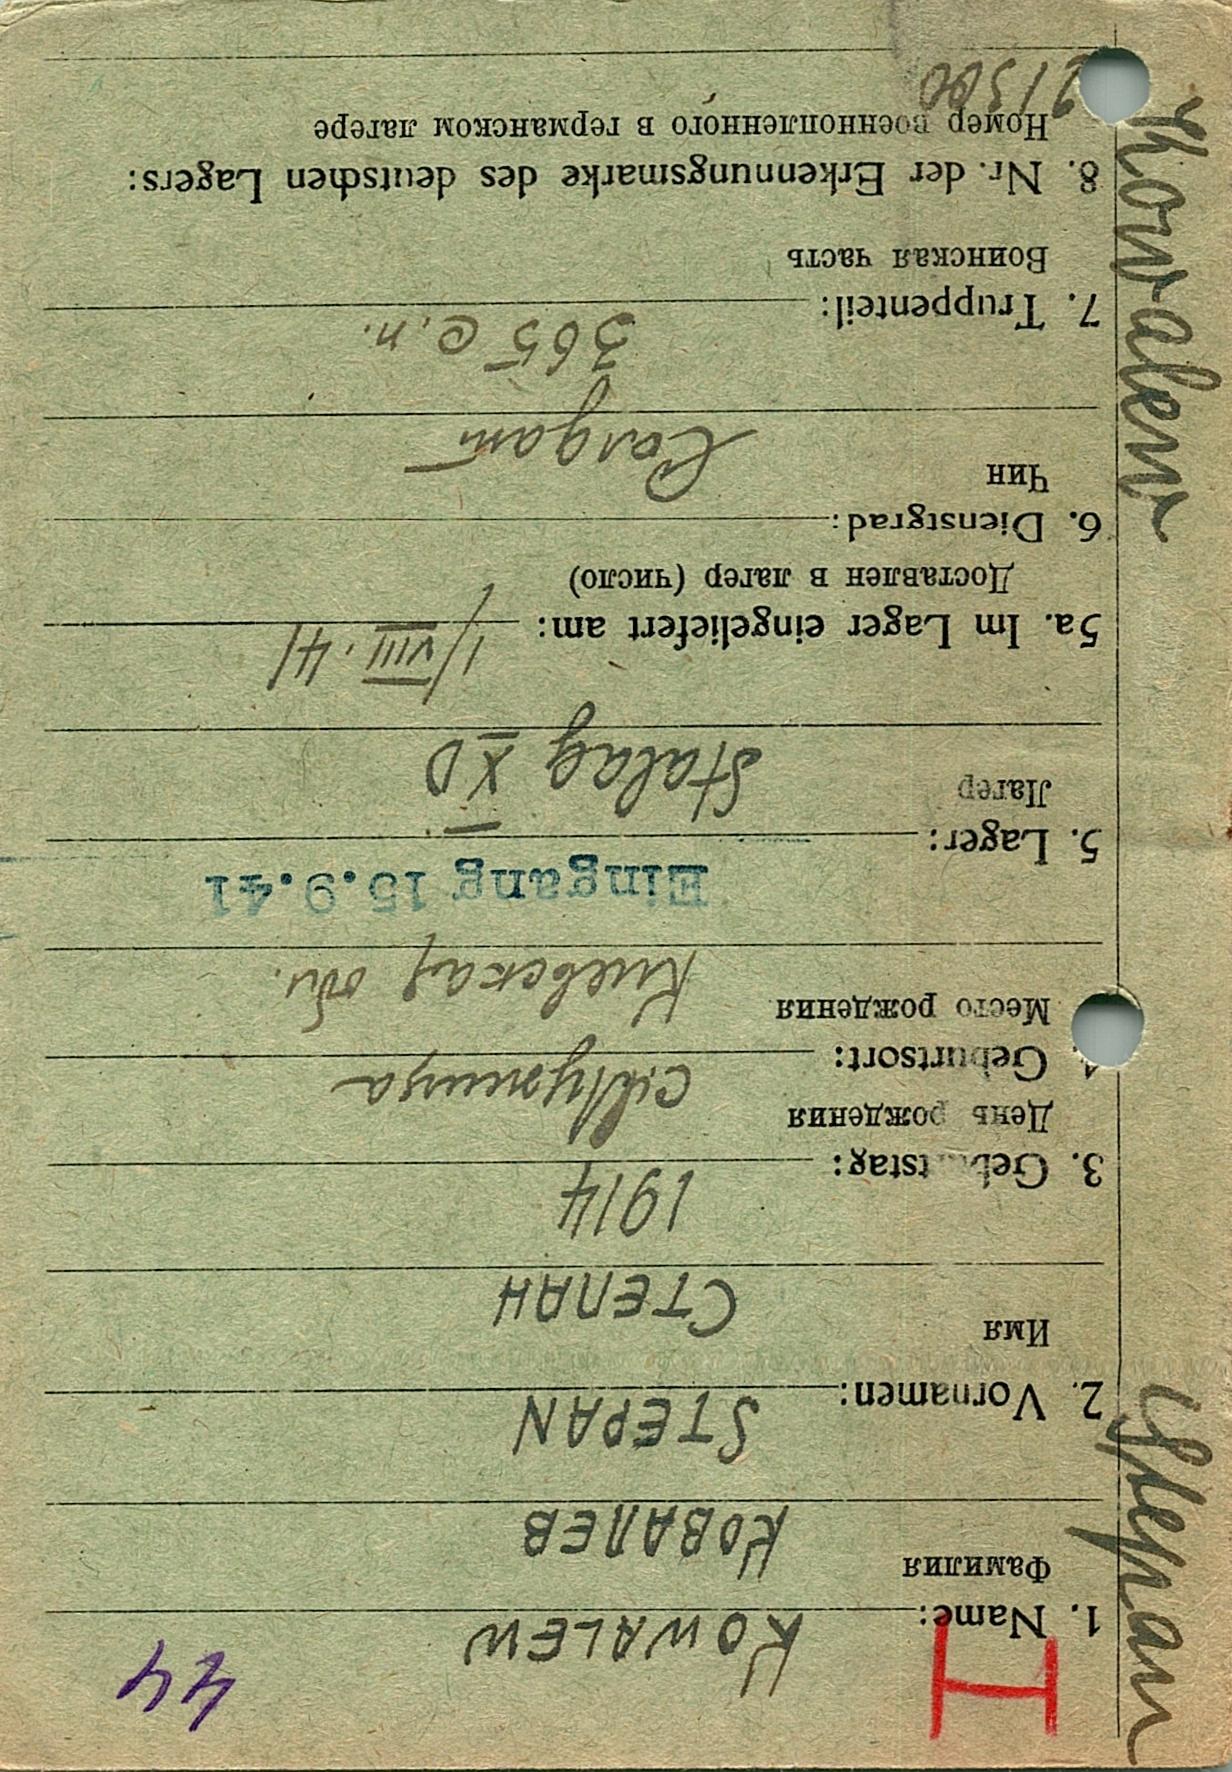 H
44
KOWALEW
1. Name:
Фамилия
КОВАЛЕВ
STEPAN
2. Vornamen:
Имя
СТЕПАН
1914
3. Geburtstag:
День рождения
4. Geburtsort:
Место рождения
Киевская обл.
Eingang 15.9.41
5. Lager:
Лагер
Stalag XD
1/VIII.41
5a. Im Lager eingeliefert am:
Доставлен в лагер (число)
6. Dienstgrad:
Чин
Солдат
365 с.п.
7. Truppenteil:
Воинская часть
8. Nr. der Erkennungsmarke des deutschen Lagers:
Номер военнопленного в германском лагере
21300
Kowalew Stepan